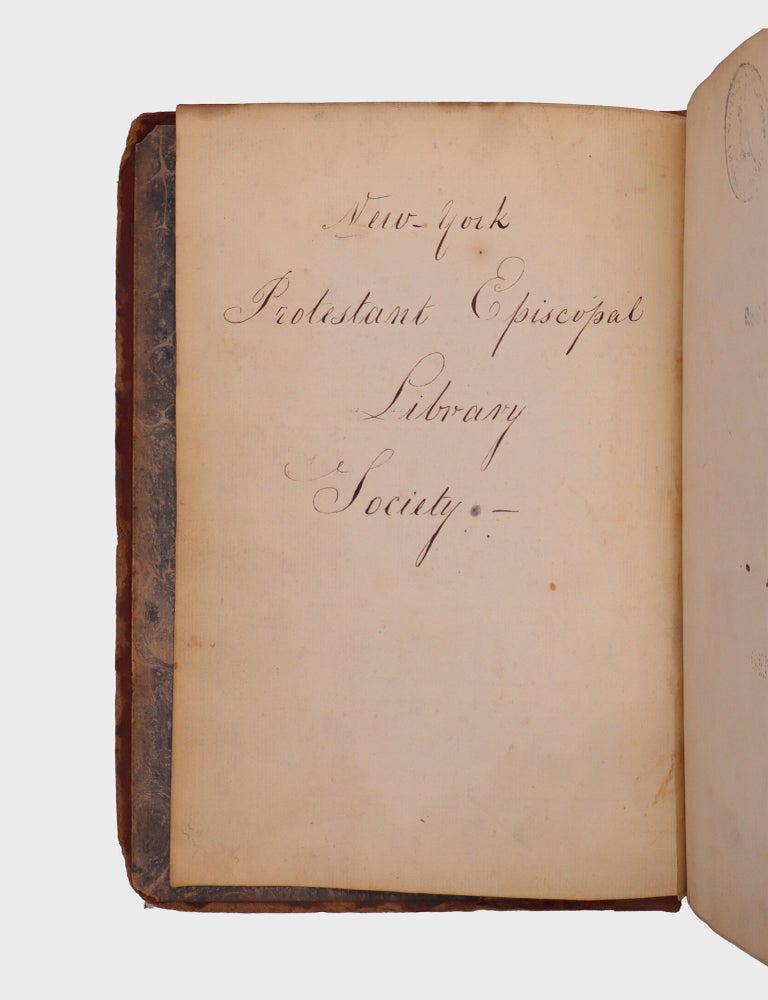 New-York
Protestant Episcopal
Library
Society. –